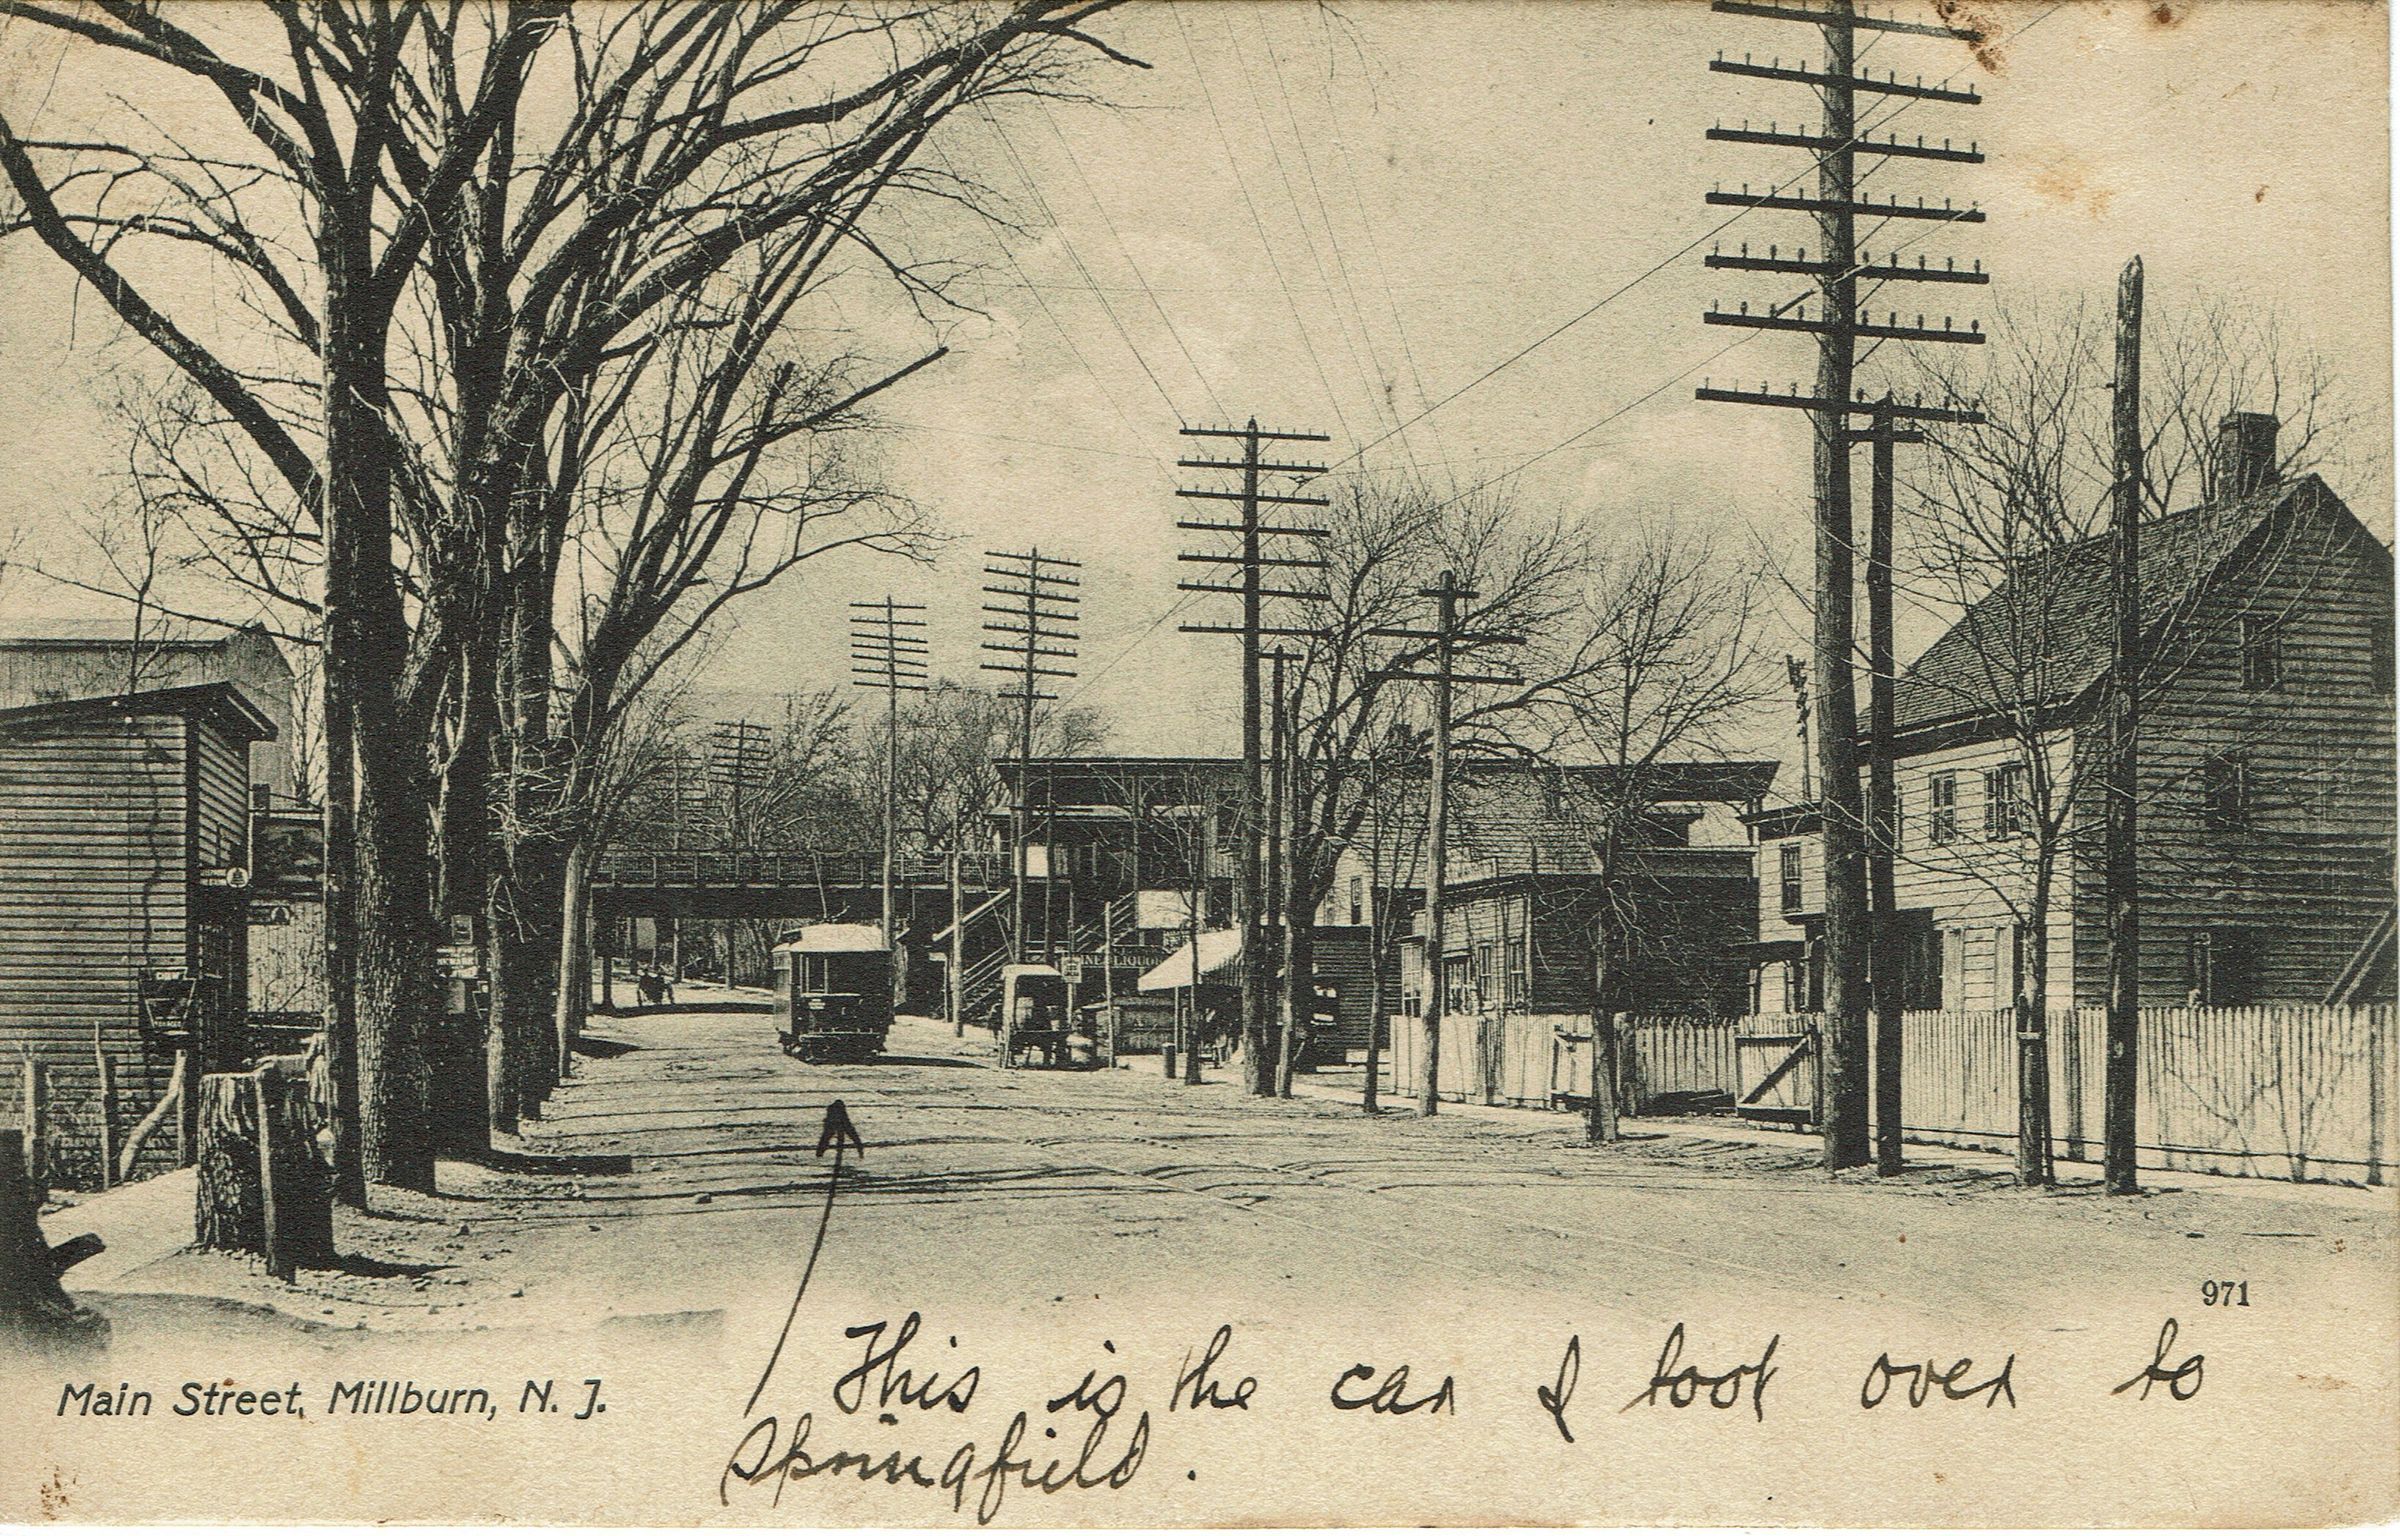 WINES LIQUORS
971
Main Street, Millburn, N. J.
This is the car I took over to
Springfield.